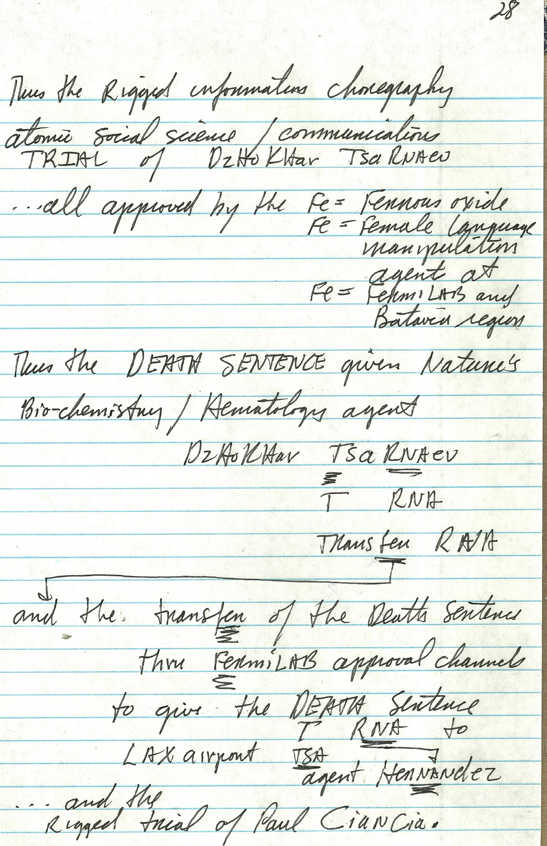 28
Thus the Rigged information choregraphy
atomic social science / communications
TRIAL of DzHoKHar TsaRNaev
...all approved by the Fe = Ferrous oxide
Fe = Female language
manipulation
agent at
Fe = FermiLAB and
Batavia region
Thus the DEATH SENTENCE given Nature's
Bio-chemistry / Hematology agent
DzHoKHar TsaRNAev
T RNA
Transfer RNA
and the transfer of the Death Sentence
thru FermiLAB approval channels
to give the DEATH Sentence
T RNA to
LAX airport TSA
agent HerNANdez
... and the
Rigged trial of Paul CiaNCia.